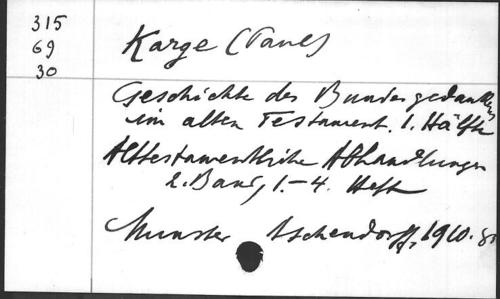 315
69
30
Karge (Paul)
Geschichte des Bundesgedankens
im alten Testament. 1. Hälfte
Alttestamentliche Abhandlungen
2. Band, 1.-4. Heft
Münster Aschendorff, 1910. 8º